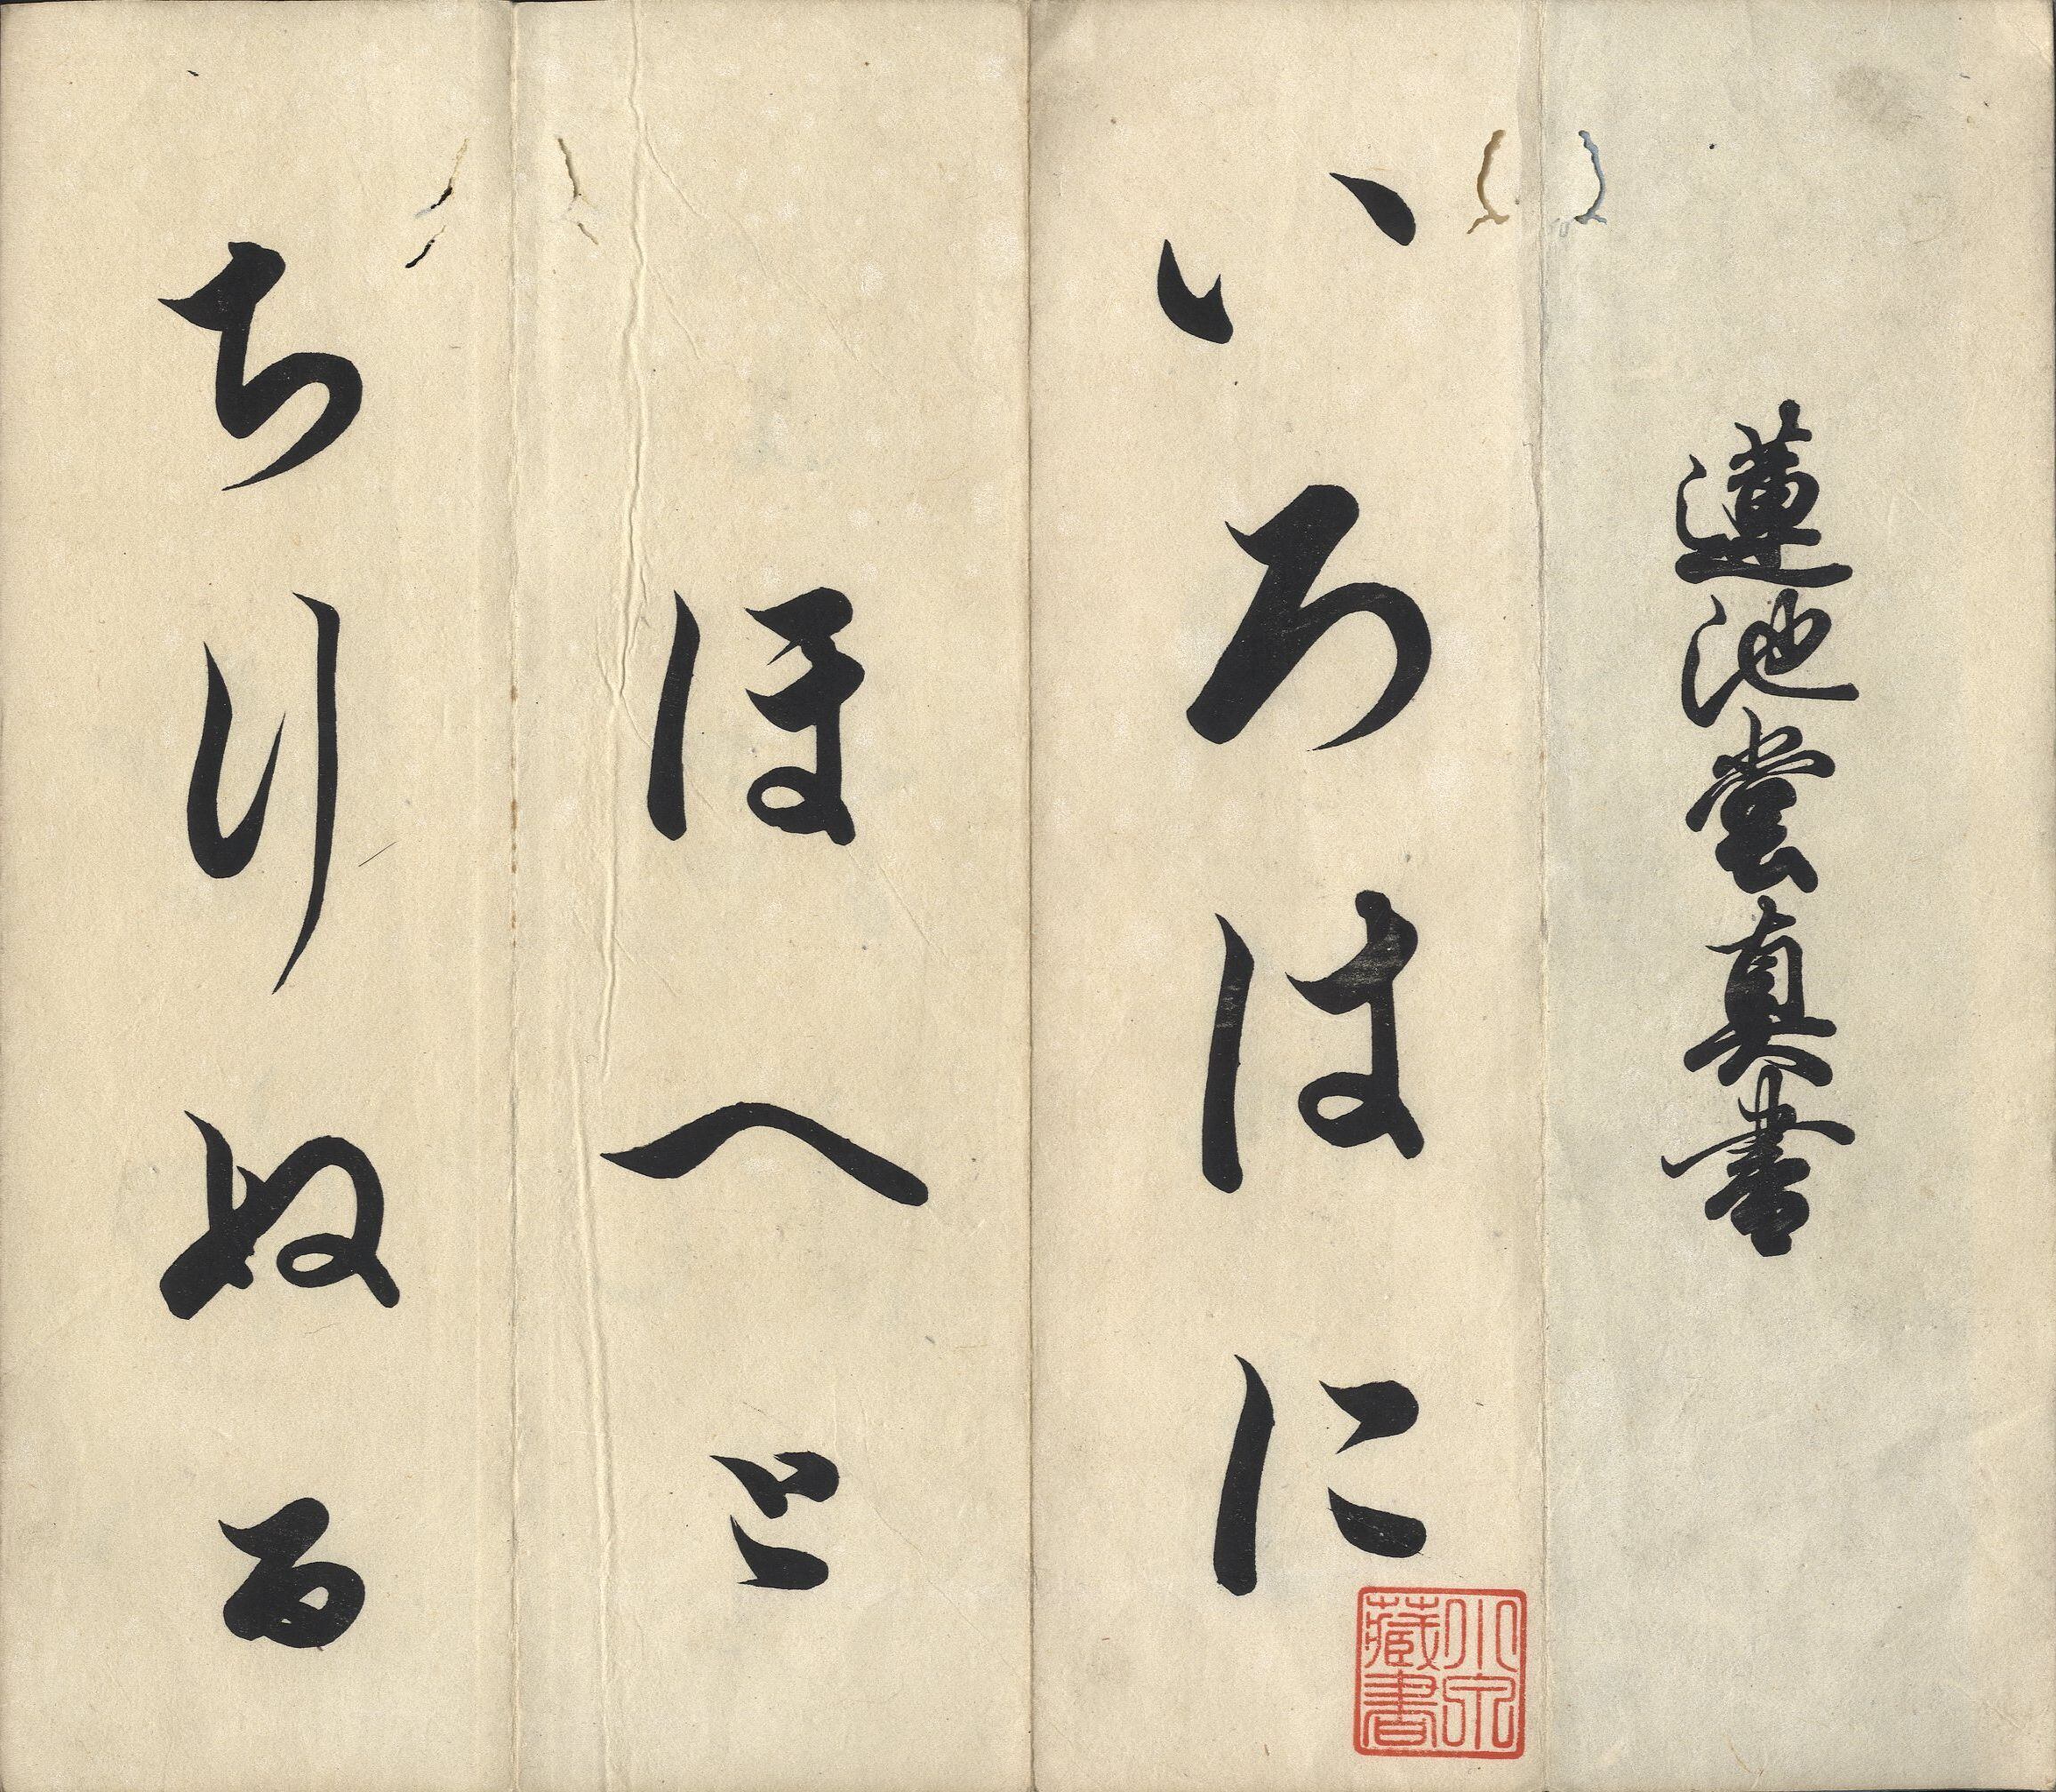 蓮池堂真書
いろはに
ほへと
ちりぬる
小泉
藏書